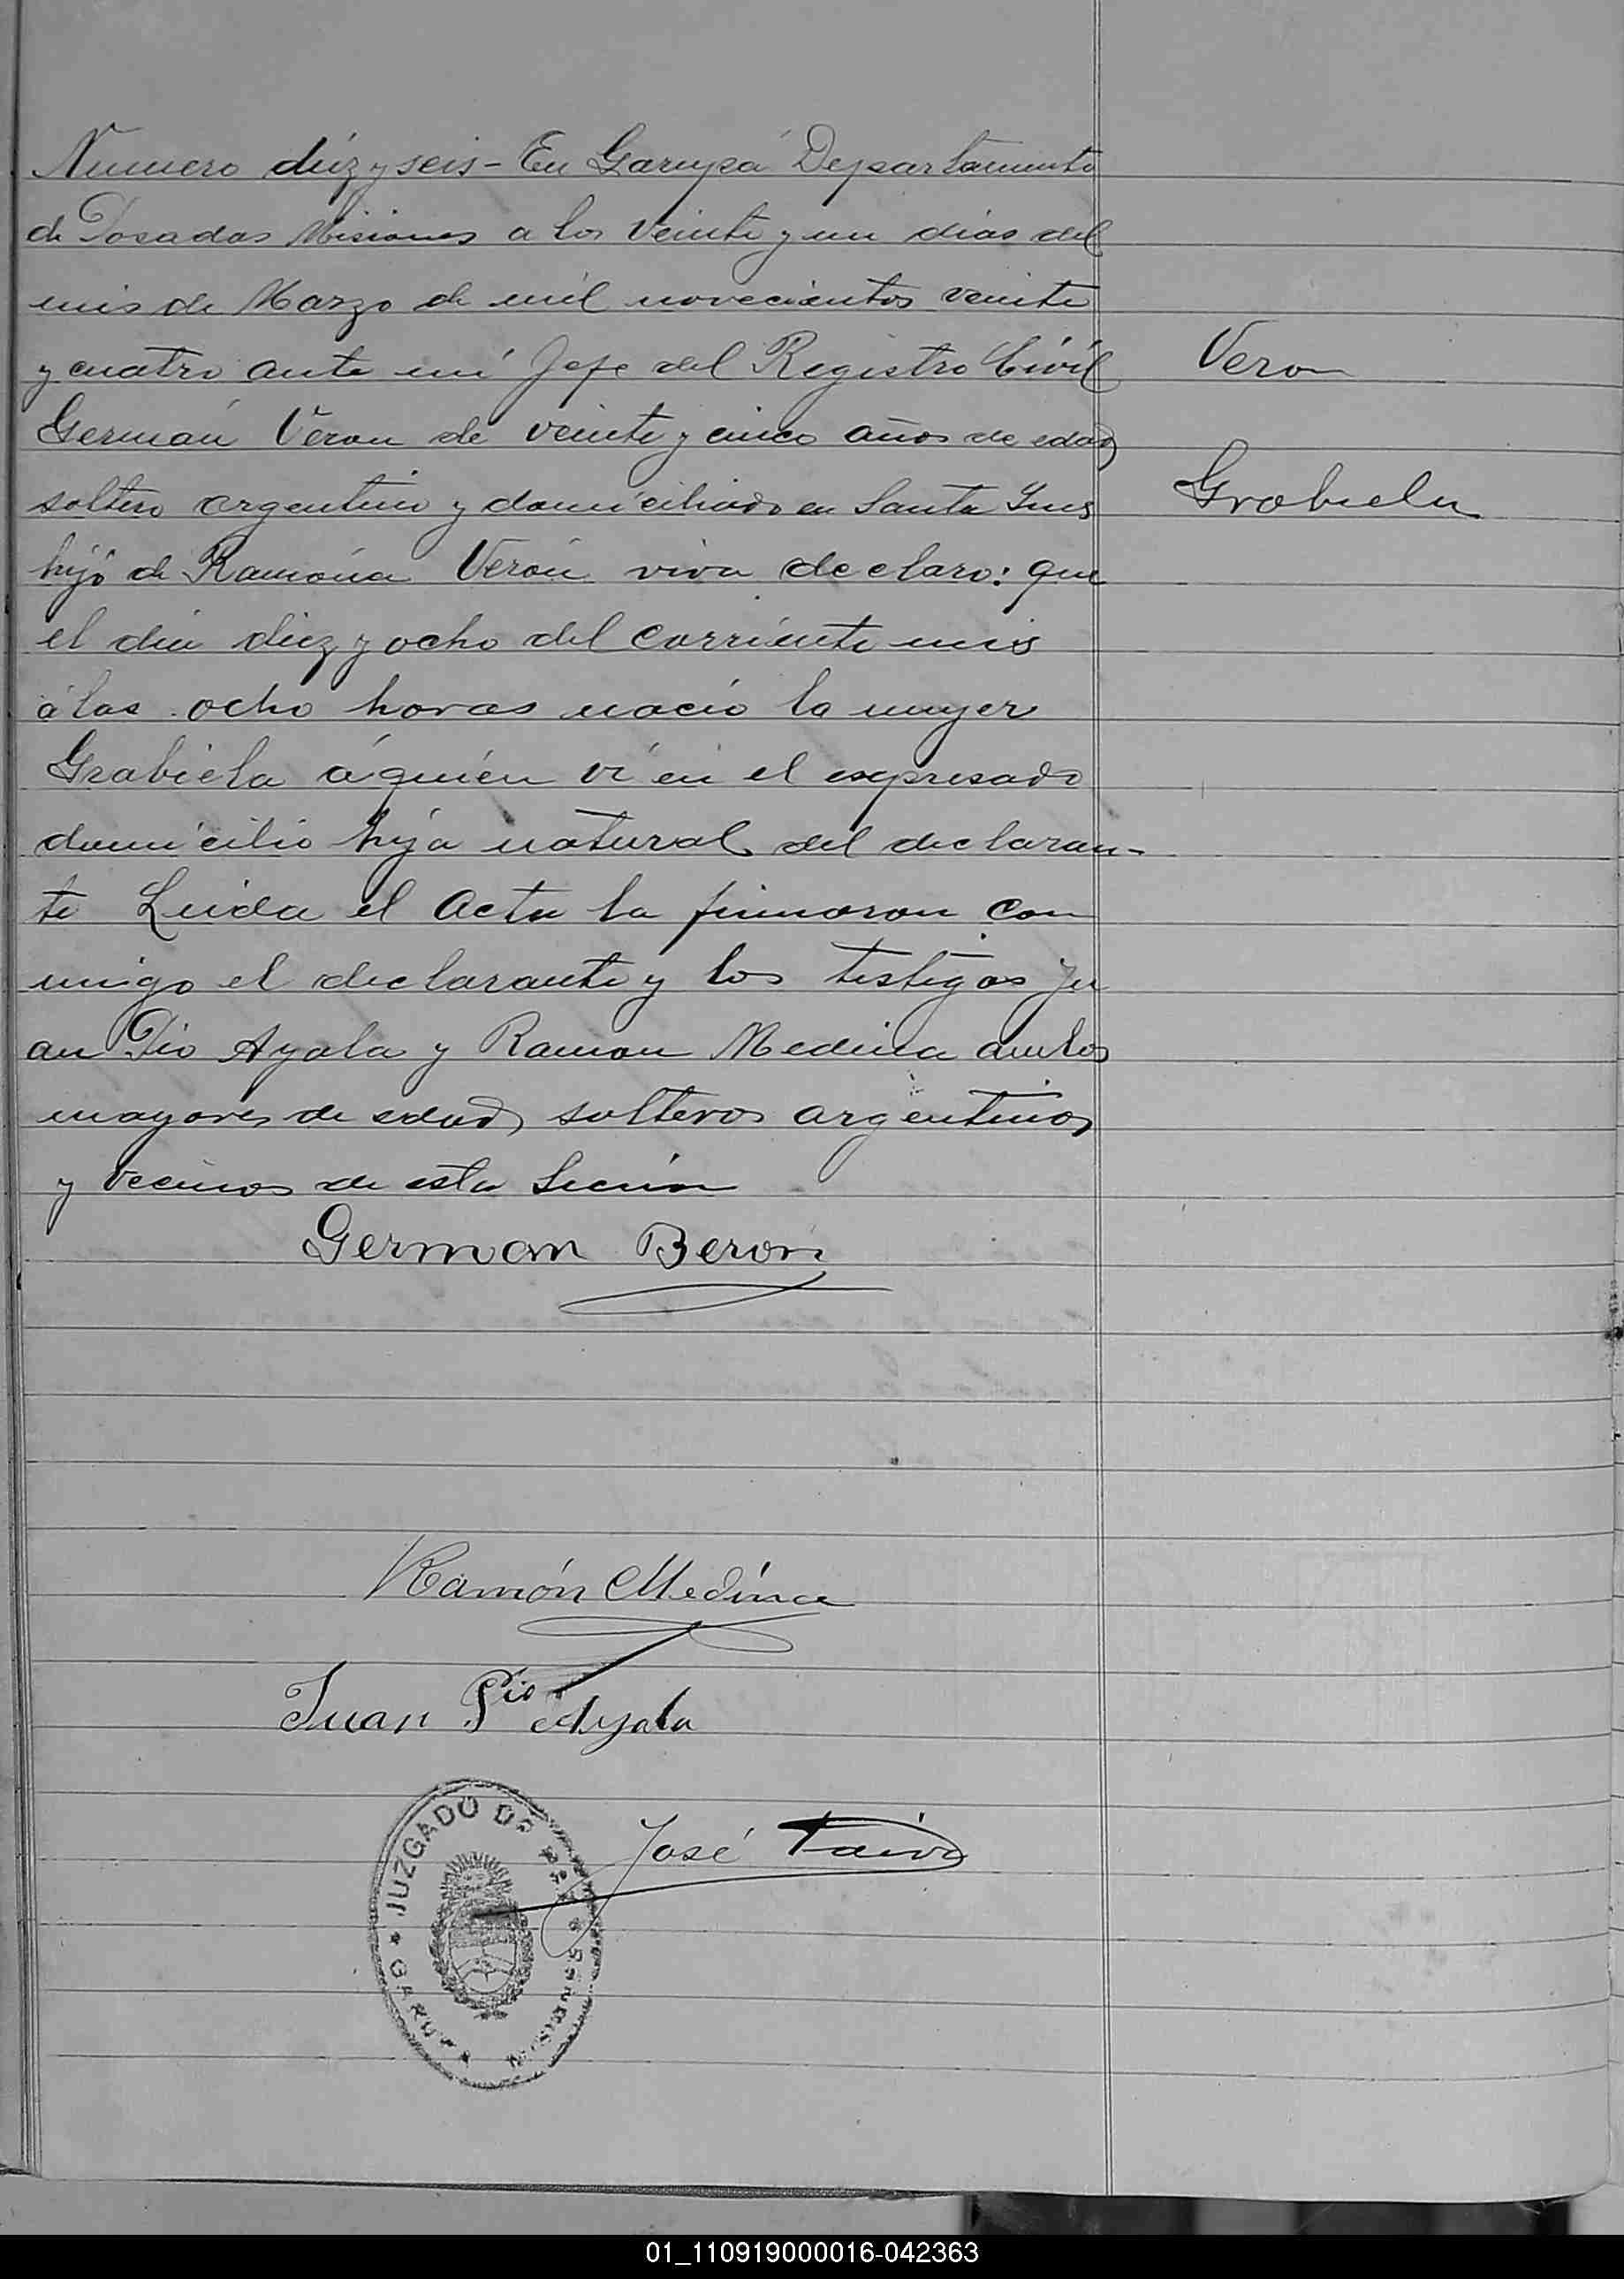 Numero diez y seis - En Garupá Departamento
de Posadas Misiones a los veinte y un dias del
mes de Marzo de mil novecientos veinte
y cuatro ante mi Jefe del Registro Civil
Germán Veron de veinte y cinco años de edad
soltero argentino y domiciliado en Santa Ines
hijo de Ramona Verón viva declaro: que
el dia diez y ocho del corriente mes
á las ocho horas nacio la muger
Grabiela á quien ví en el expresado
domicilio hija natural del declaran-
te Leida el Acta la firmaron con
migo el declarante y los testigos Ju
an Pio Ayala y Ramon Medina ambos
mayores de edad solteros argentinos
y vecinos de esta Seccion
Veron
Grabiela
German Beron
Ramón Medina
Juan Pio Ayala
José Paiva
JUZGADO DE PAZ
GARUPA
MISIONES
01_110919000016-042363